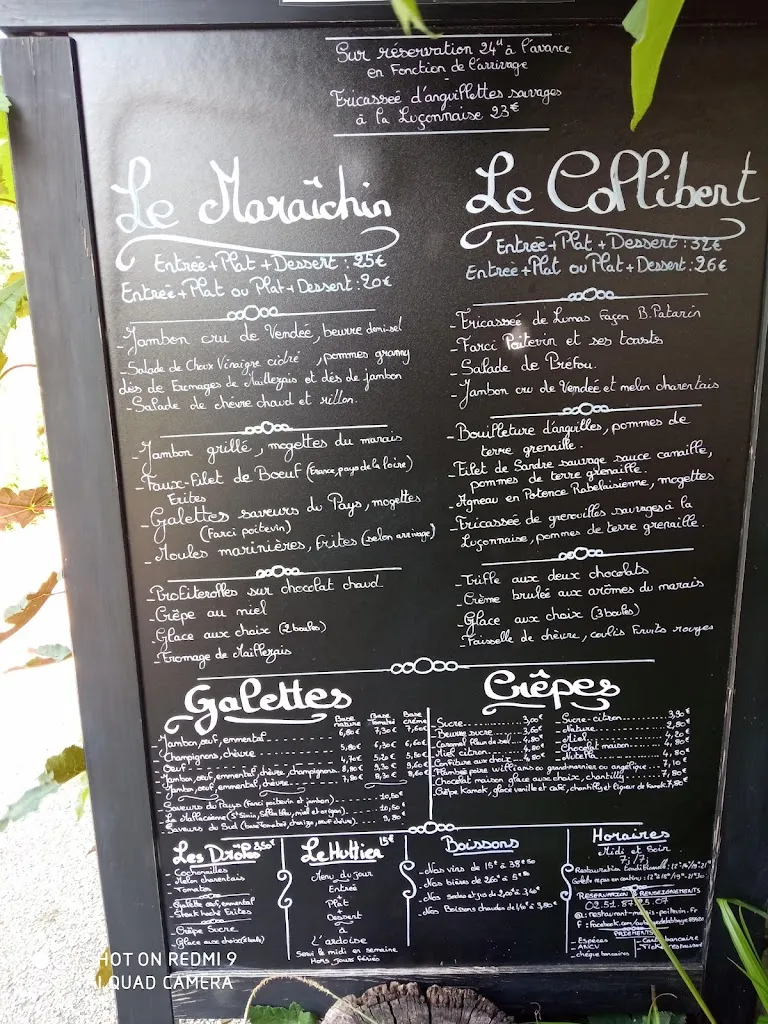 Sur réservation 24H à l'avance
en Fonction de l'arrivage
Fricasseé d'anguillettes sauvages
à la Luçonnaise 23€
Le Maraîchin
Entrée+Plat+Dessert : 25€
Entrée+Plat ou Plat+Dessert: 20€
- Jambon cru de Vendée, beurre demi-sel
- Salade de Choux Vinaigre cidré , pommes granny
dés de Fromages de Maillezais et dés de jambon
- Salade de chèvre chaud et rillon.
- Jambon grillé, mogettes du marais
- Faux-Filet de Boeuf (France, pays de la loire)
Frites
- Galettes saveurs du Pays, mogettes
(Farci poitevin)
- Moules marinières, Frites (selon arrivage)
- Profiterolles sur chocolat chaud
- Crêpe au miel
- Glace aux choix (2 boules)
- Fromage de Maillezais
Le Collibert
Entrée+Plat+Dessert : 32€
Entrée+Plat ou Plat+Dessert: 26€
- Fricasseé de Lumas façon B.Patarin
- Farci Poitevin et ses toasts
- Salade de Préfou.
- Jambon cru de Vendée et melon charentais
- Bouilleture d'anguilles, pommes de
terre grenaille.
- Filet de Sandre sauvage sauce canaille,
pommes de terre grenaille.
- Agneau en Potence Rabelaisienne, mogettes
- Fricassée de grenouilles sauvages à la
Luçonnaise, pommes de terre grenaille.
- Trifle aux deux chocolats
- Crème brulée aux arômes du marais
- Glace aux choix (3 boules)
- Faisselle de chèvre, coulis Fruits rouges
Galettes
Base nature Base Tomates Base crème
- Jambon, œuf, emmental 6,80€ 7,30€ 7,60€
- Champignons, chèvre 5,80€ 6,30€ 6,60€
- Oeuf 4,70€ 5,20€ 5,50€
- Jambon, œuf, emmental, chèvre, champignons 8,80€ 9,30€ 9,60€
- Jambon, œuf, emmental, chèvre 7,80€ 8,30€ 8,60€
- Saveurs du Pays (Farci poitevin et jambon) 10,50€
- La Mallecéenne 10,50€
- Saveurs du Sud 9,80€
Crêpes
- Sucre 3,00€
- Beurre sucre 3,60€
- Caramel 4,80€
- Miel citron 4,80€
- Confiture aux choix 4,80€
- Sucre-citron 3,90€
- Nature 2,80€
- Miel 4,20€
- Chocolat maison 4,80€
- Nutella 4,80€
- Flambée poire williams ou grand marnier ou angélique 7,10€
- Chocolat maison, glace aux choix, chantilly 7,80€
- Crêpe Kamok, glace vanille et café, chantilly et liqueur de Kamok 7,80€
Les Drôles 8,50€
- Cochonailles
- Melon charentais
- Tomates
- Galette œuf, emmental
- Steak haché Frites
- Crêpe Sucre
- Glace aux choix (2 boules)
Le Huttier 15€
Menu du jour
Entrée
+
Plat
+
Dessert
à
L'ardoise
Servi le midi en semaine
Hors jours Fériés
Boissons
- Nos vins de 15€ à 38€50
- Nos bières de
- Nos sodas et jus de 2,00€ à 3,40€
- Nos Boissons chaudes de 1,60€ à 3,80€
Horaires
Midi et Soir
7j/7j
RESERVATION & RENSEIGNEMENTS
PAIEMENTS
- Espèces
- ANCV
- chèque bancaires
- Carte bancaire
- Ticket restaurant
SHOT ON REDMI 9
AI QUAD CAMERA